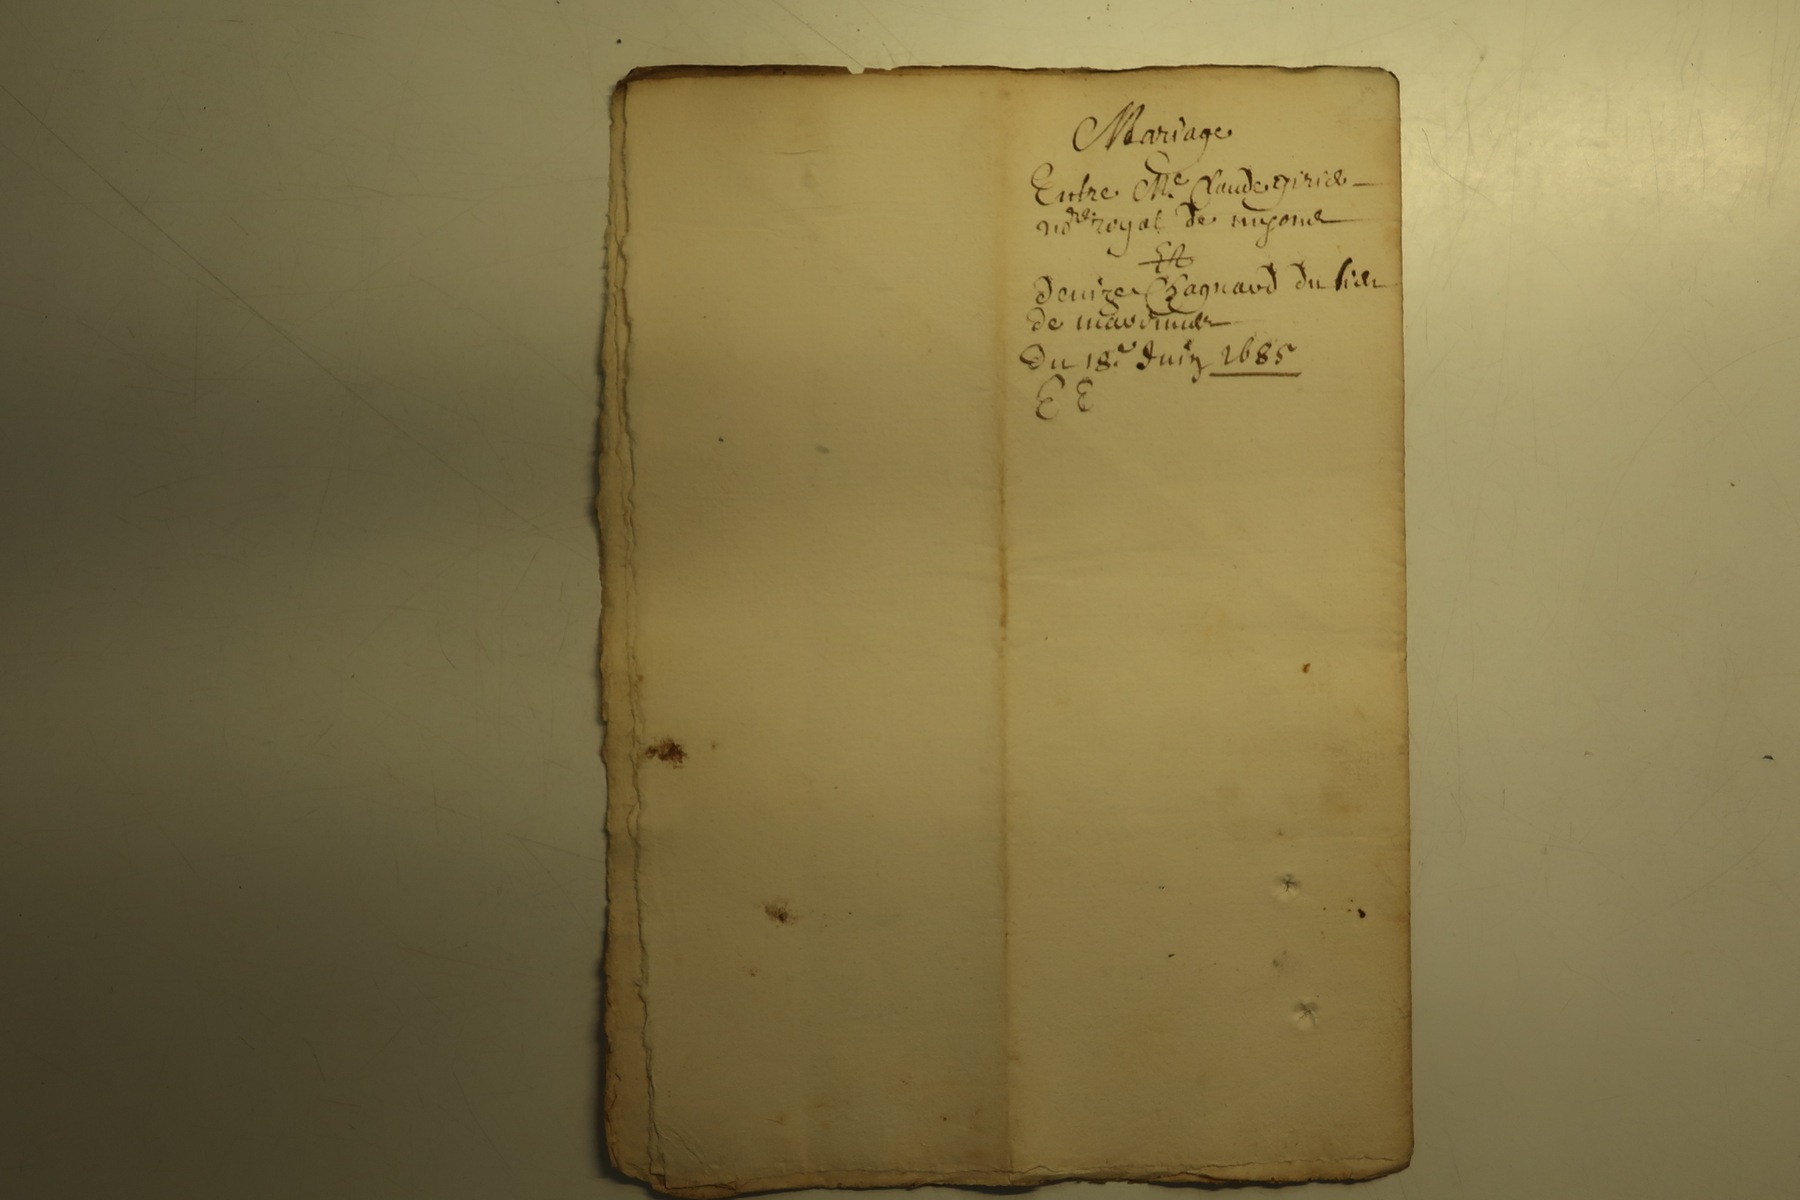 Mariage
Entre Me Claude girie
nore royal de
Et
denize Chagnard du lieu
de
Du 18e Juin 1685
E E